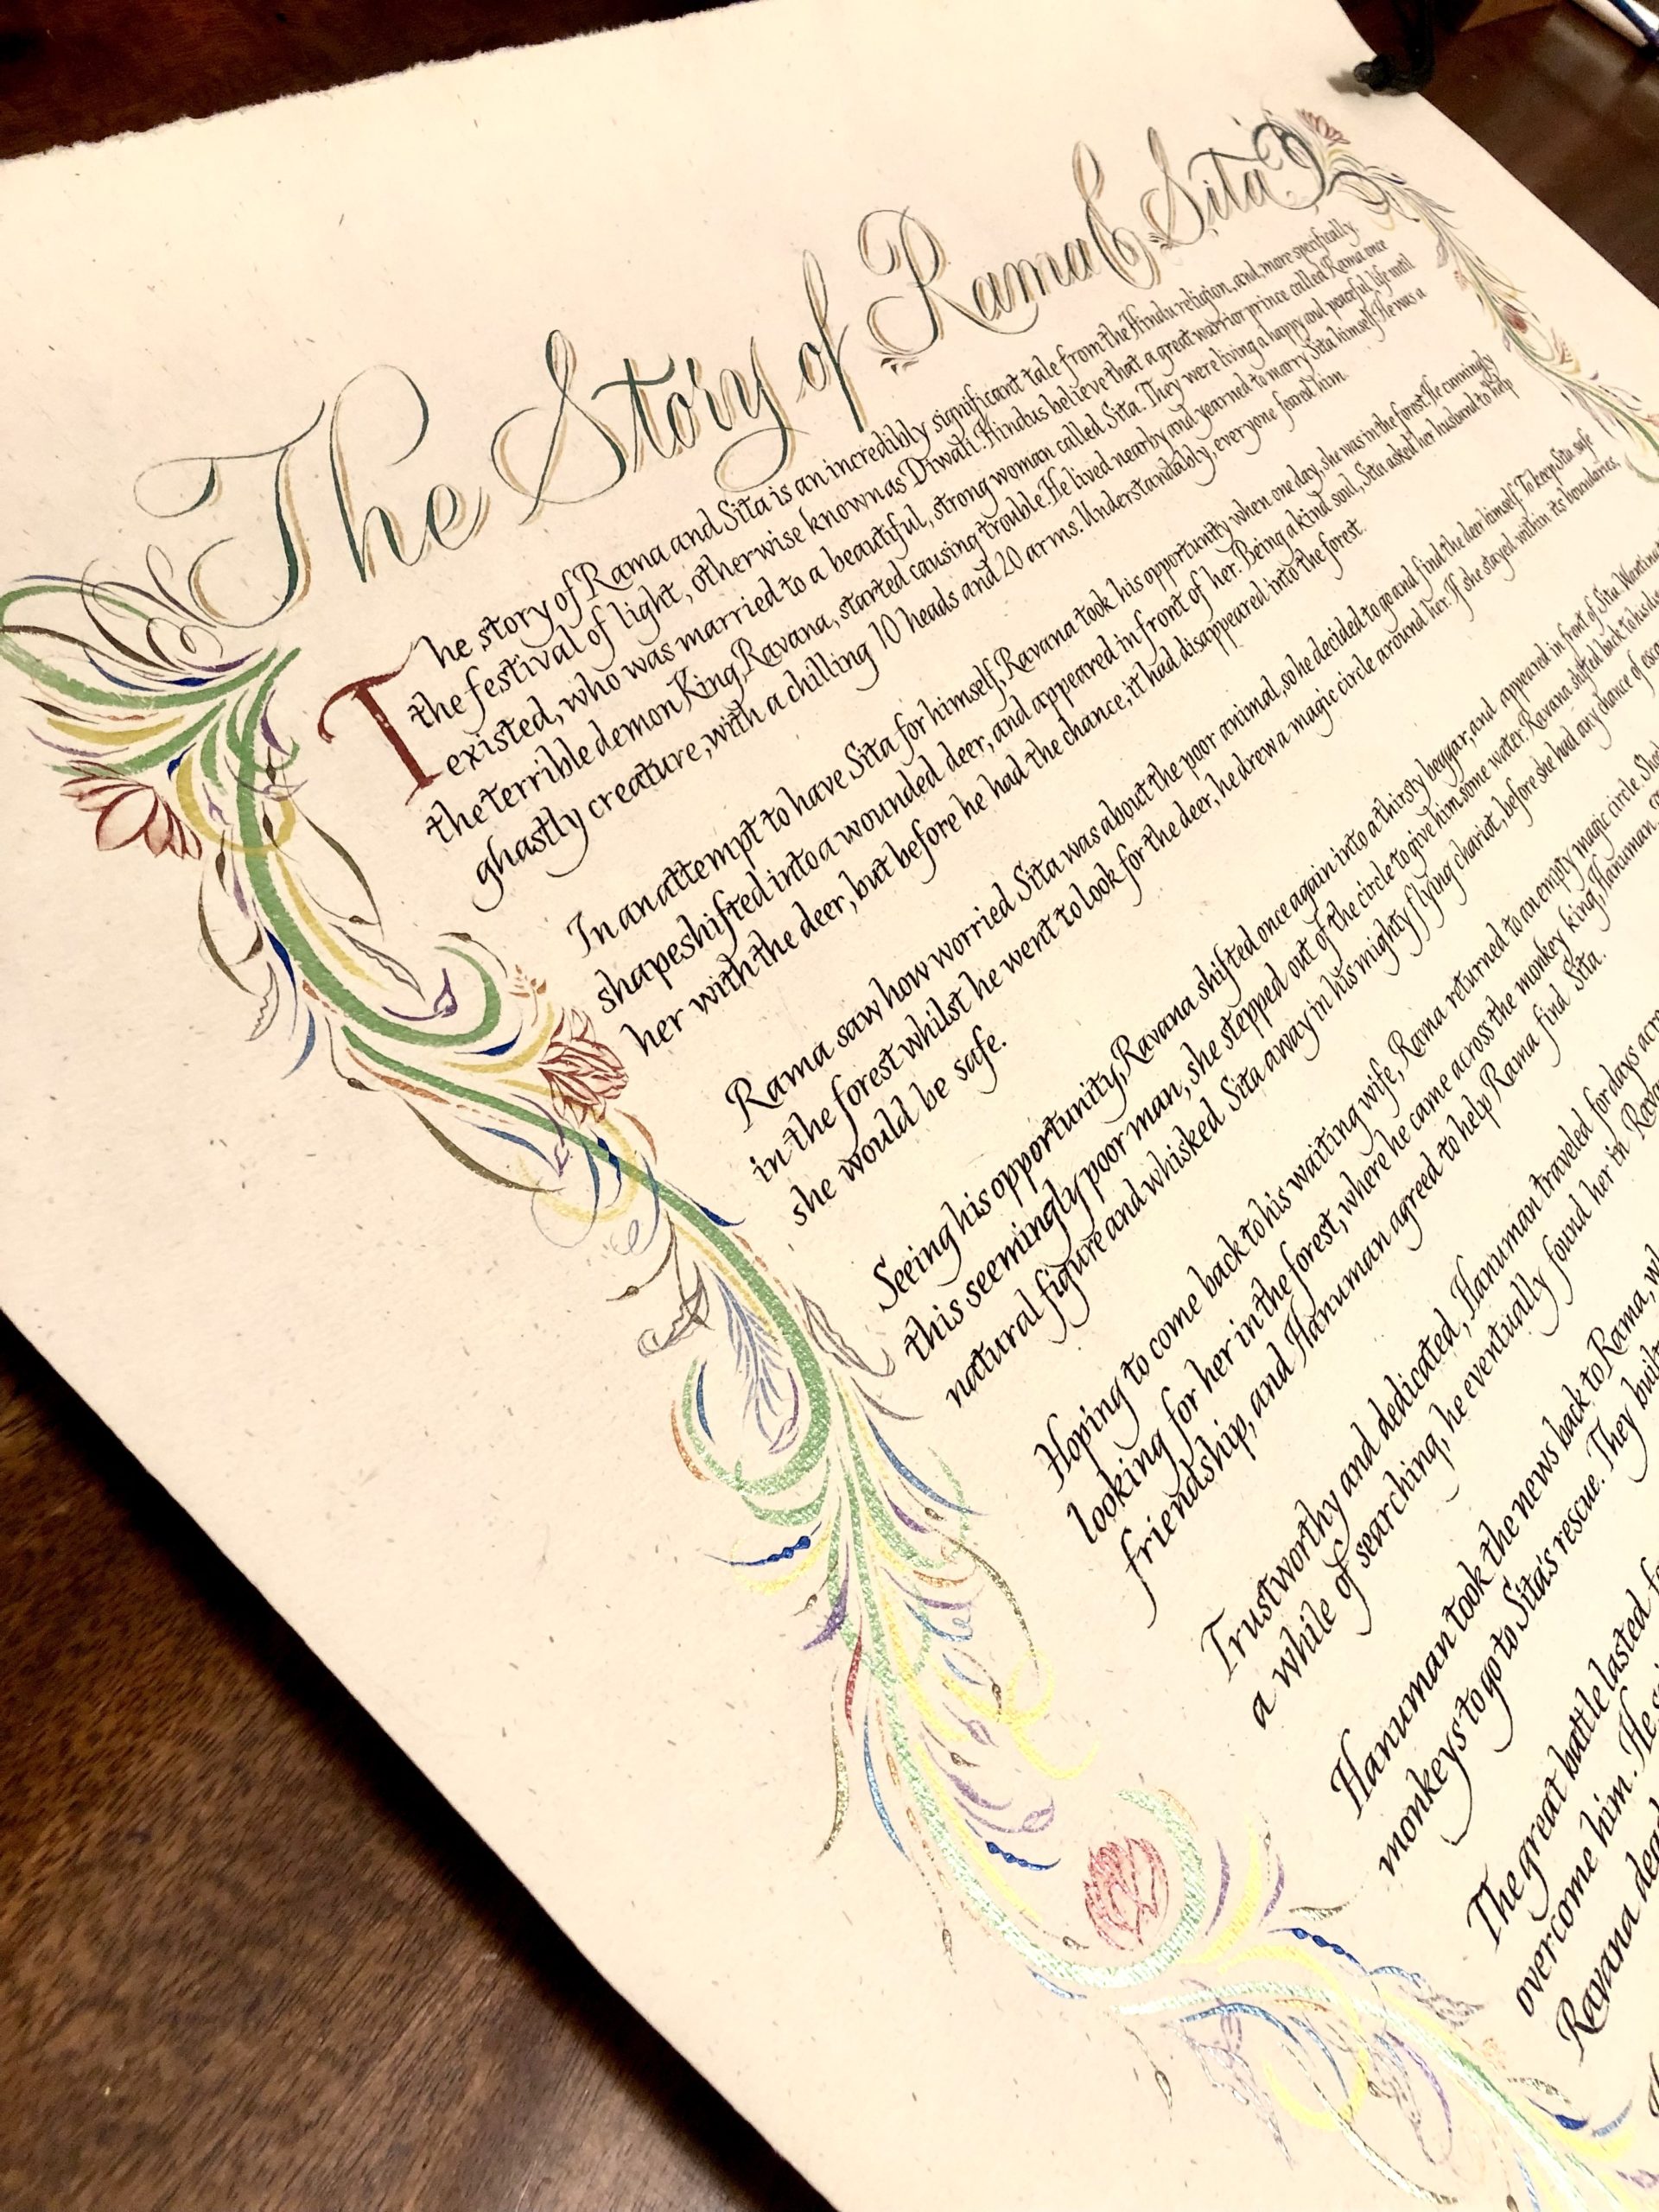 The Story of Rama & Sita
The story of Rama and Sita is an incredibly significant tale from the Hindu religion, and, more specifically
the festival of light, otherwise known as Diwali. Hindus believe that a great warrior prince called Rama once
existed, who was married to a beautiful, strong woman called Sita. They were living a happy and peaceful life until
the terrible demon King, Ravana, started causing trouble. He lived nearby and yearned to marry Sita himself. He was a
ghastly creature, with a chilling 10 heads and 20 arms. Understandably, everyone feared him.
In an attempt to have Sita for himself, Ravana took his opportunity when one day, she was in the forest. He cunningly
shapeshifted into a wounded deer, and appeared in front of her. Being a kind soul, Sita asked her husband to help
her with the deer, but before he had the chance, it had disappeared into the forest.
Rama saw how worried Sita was about the poor animal, so he decided to go and find the deer himself. To keep Sita safe
in the forest whilst he went to look for the deer, he drew a magic circle around her. If she stayed within its boundaries,
she would be safe.
Seeing his opportunity, Ravana shifted once again into a thirsty beggar, and appeared in front of Sita.
this seemingly poor man, she stepped out of the circle to give him some water. Ravana shifted back to his
natural figure and whisked Sita away in his mighty flying chariot, before she had any chance of
Hoping to come back to his waiting wife, Rama returned to an empty magic circle.
looking for her in the forest, where he came across the monkey king, Hanuman.
friendship, and Hanuman agreed to help Rama find Sita.
Trustworthy and dedicated, Hanuman traveled for days
a while of searching, he eventually found her in
Hanuman took the news back to Rama,
monkeys to go to Sita's rescue. They built
The great battle lasted
overcome him. He
Ravana